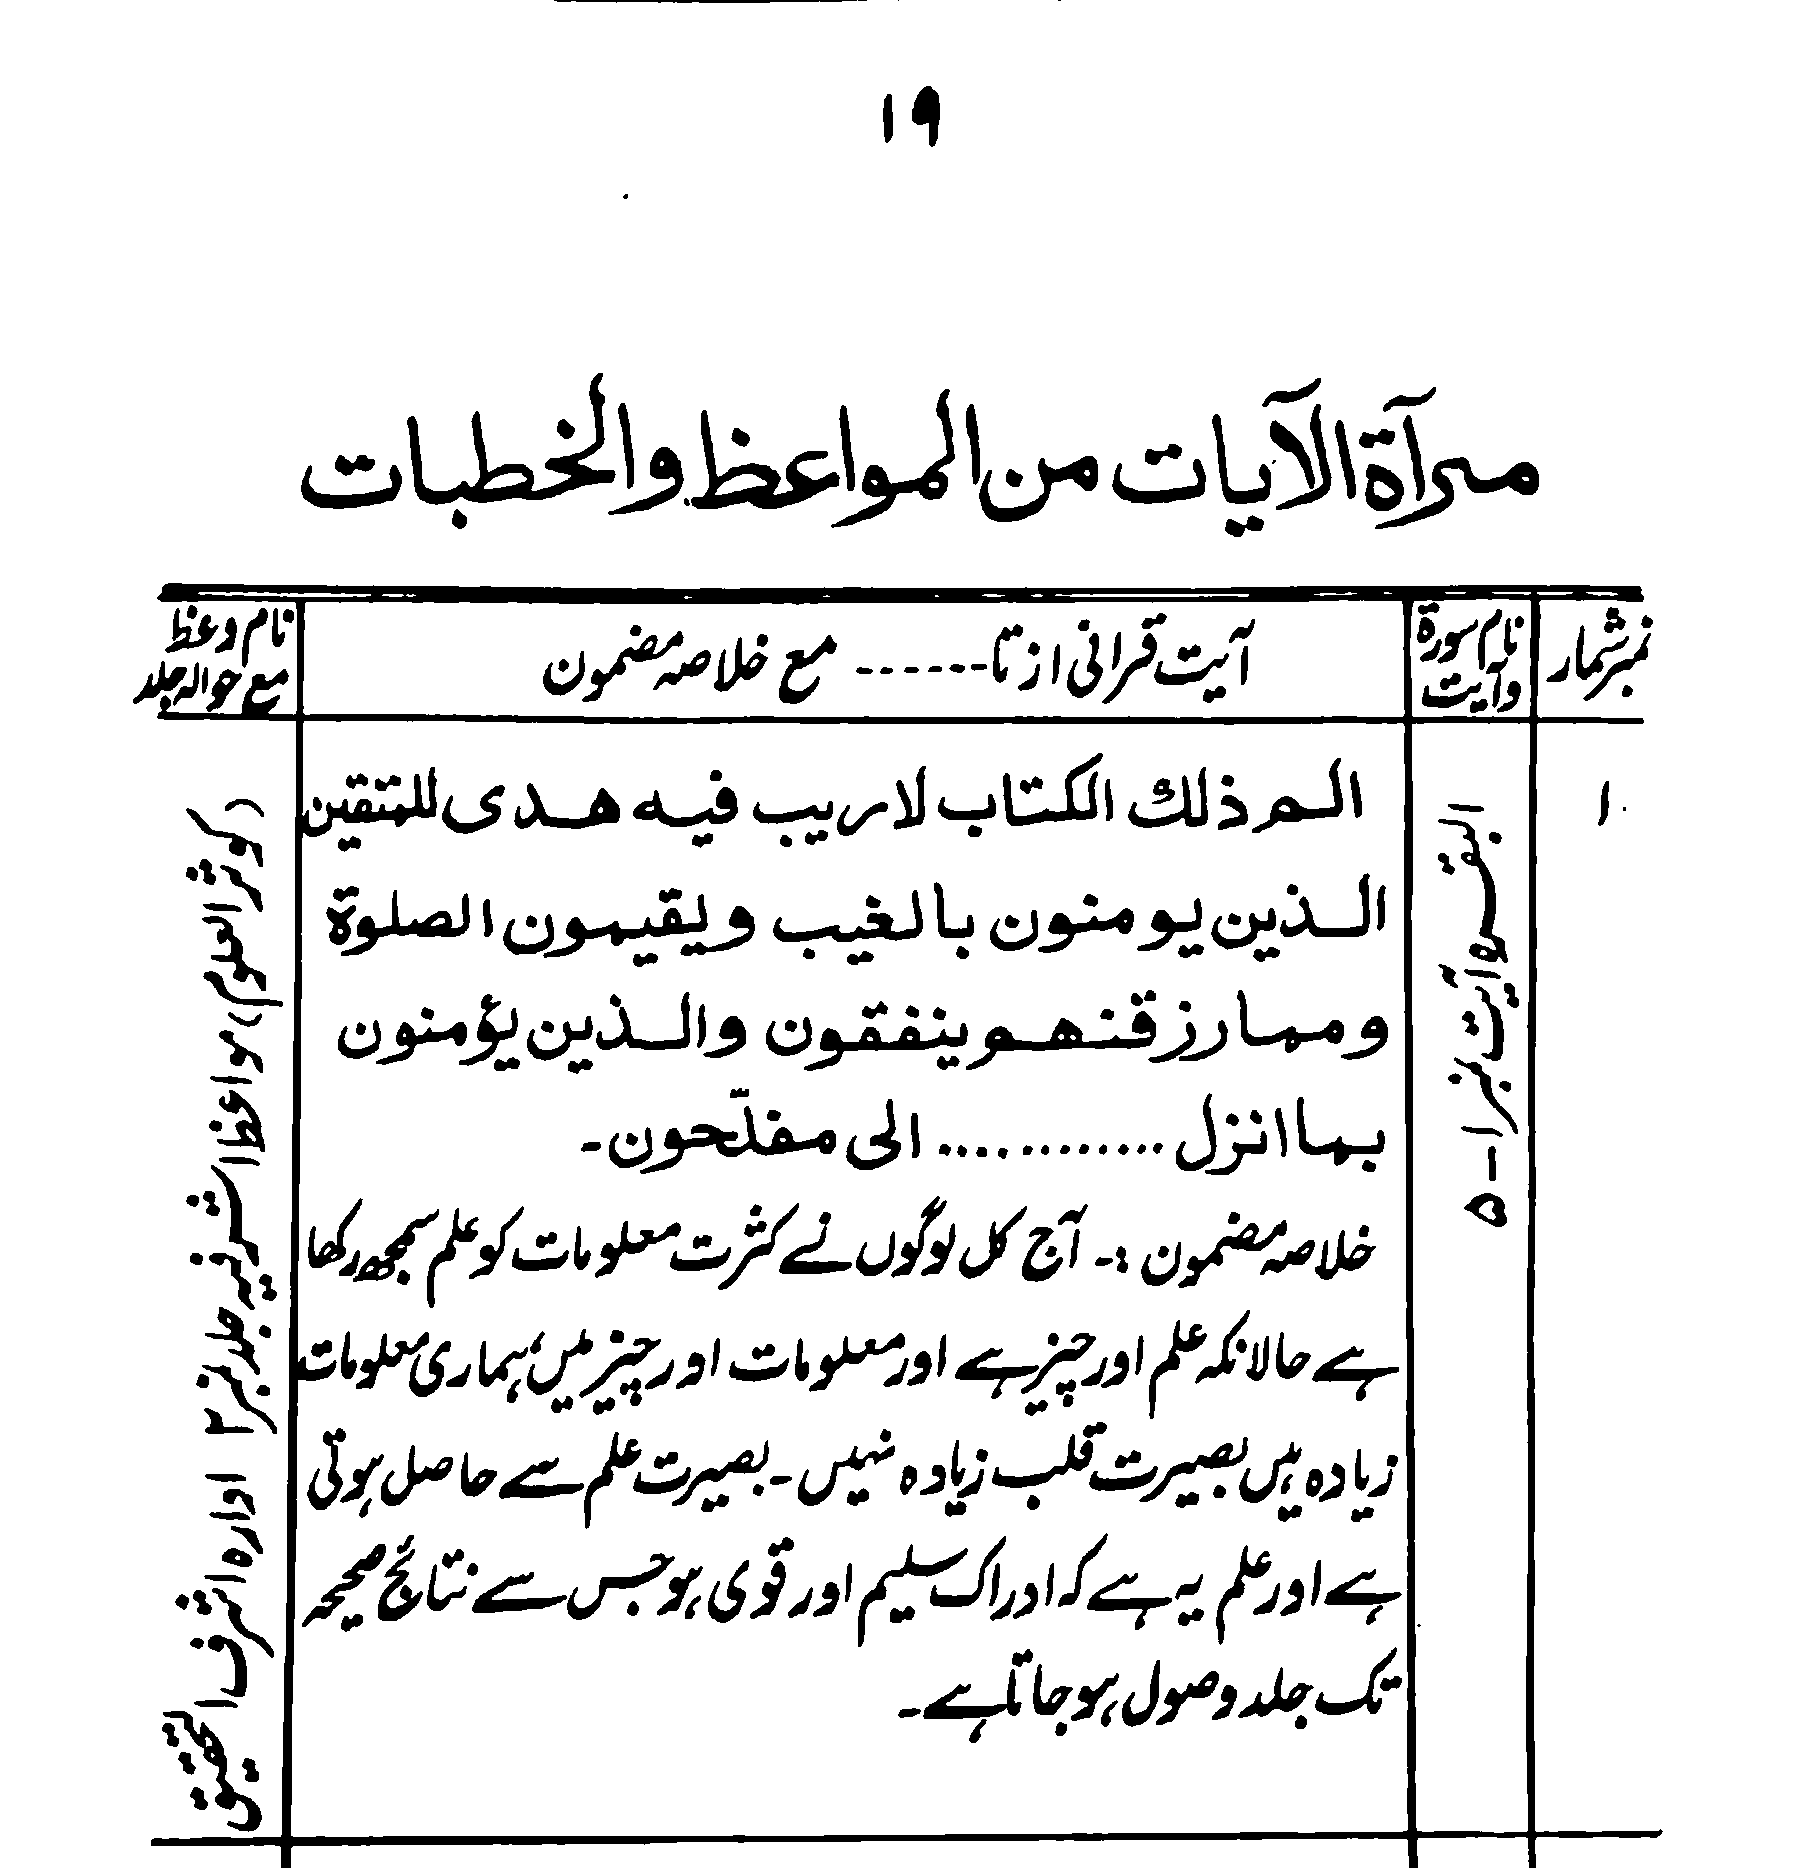 ۱۹
مرآة الآیات من المواعظ والخطبات
نمبر شمار
نام سورة
و آیت
آیت قرانی از تا ------ مع خلاصہ مضمون
نام وعظ
مع حوالہ جلد
۱
البقرہ آیت نمبر ۱-۵
الم ذلك الكتاب لاريب فيه هدى للمتقين
الذين يومنون بالغيب ويقيمون الصلوة
ومما رزقنهم ينفقون والذين يؤمنون
بما انزل ............ الى مفلحون۔
خلاصہ مضمون :۔ آج کل لوگوں نے کثرت معلومات کو علم سمجھ رکھا
ہے حالانکہ علم اور چیز ہے اور معلومات اور چیز میں، ہماری معلومات
زیادہ ہیں بصیرت قلب زیادہ نہیں ۔ بصیرت علم سے حاصل ہوتی
ہے اور علم یہ ہے کہ ادراک سلیم اور قوی ہو جس سے نتائج صحیحہ
تک جلد وصول ہو جاتا ہے ۔
(کوثر العلوم) مواعظ اشرفیہ جلد نمبر ۲ ادارہ اشرف التحقیق